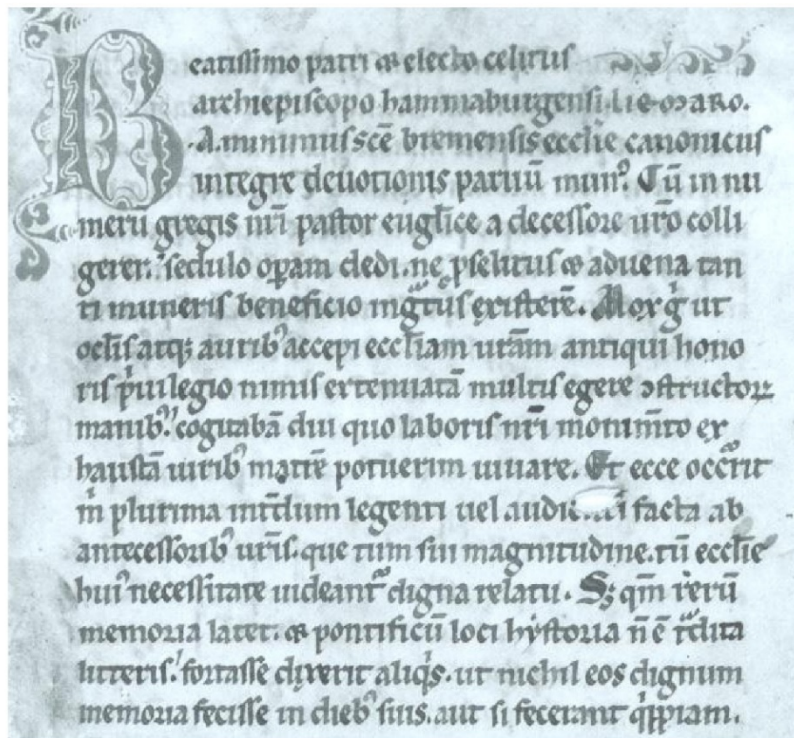 Beatissimo patri & electo celitus
archiepiscopo hammaburgensi. liemaro.
.A. minimus scē bremensis ecclīe canonicus
integre deuotionis paruū mun᷒. Cū in nu
meru gregis nr̄i pastor eugl̄ice a decessore ur̄o colli
gerer. sedulo oꝑam dedi. ne ꝓselitus & aduena tan
ti muneris beneficio ingͣtus existerē. Mox gͥ ut
ocl̄is atqꝫ aurib᷒ accepi eccl̄iam urām antiqui hono
ris pͥuilegio nimis extenuatā multis egere ꝯstructoꝝ
manib᷒. cogitabā diu quo laboris nr̄i monim̄to ex
haustā uirib᷒ matrē potuerim iuuare. Et ecce occͬrit
m̄ plurima int̄dum legenti uel facta ab
antecessorib᷒ ur̄is. que tum sui magnitudine. tū ecclīe
hui᷒ necessitate uideant᷑ digna relatu. Sꝫ qm̄ rerū
memoria latet. & pontificū loci hystoria n̄ ē tͣdita
litteris. fortasse dixerit aliqͥs. ut nichil eos dignum
memoria fecisse in dieb᷒ suis. aut si fecerant qͥppiam.